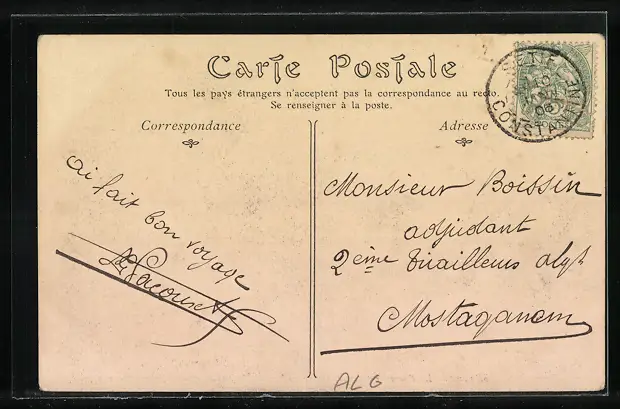 Carte Postale
Tous les pays étrangers n'acceptent pas la correspondance au recto.
Se renseigner à la poste.
Correspondance
Adresse
SETIF
CONSTANTINE
ai fait bon voyage
Monsieur Boissin
adjudant
2ème Tirailleurs algs
Mostaganem
ALG